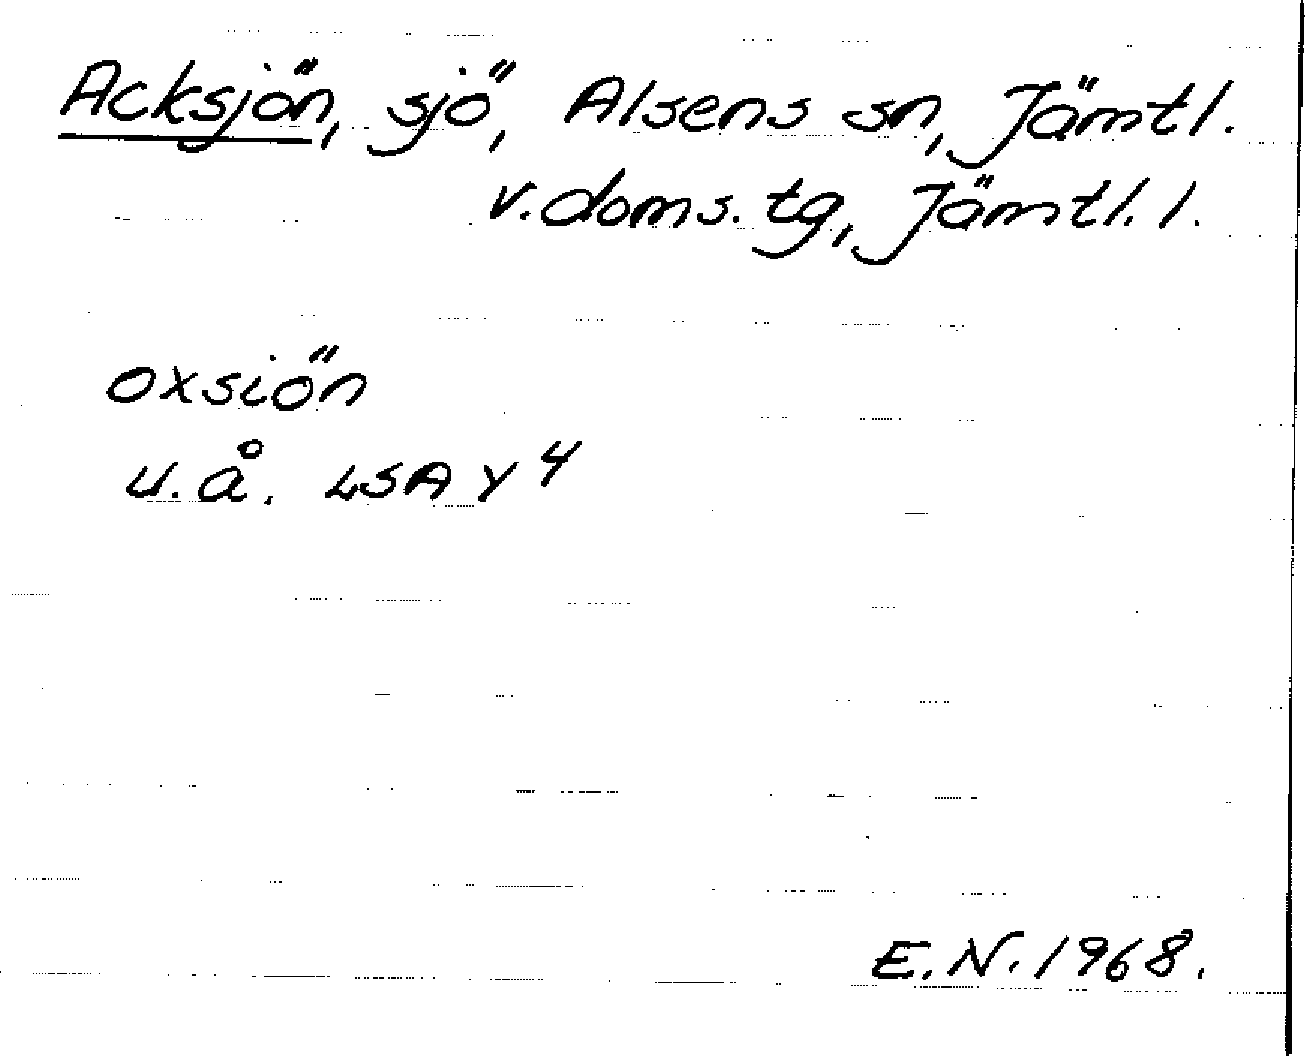 Acksjön, sjö, Alsens sn, Jämtl.
v. doms. tg, Jämtl. l.
oxsiön
u.å. LSA Y 4
E.N. 1968.